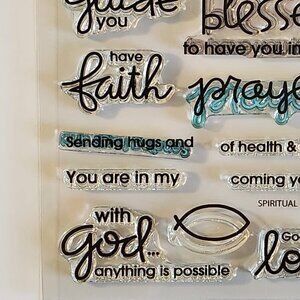 guide
you
blesse
to have you in
have
faith
praye
Sending hugs and
of health &
You are in my
coming yo
SPIRITUAL
with
god...
anything is possible
Go
lo